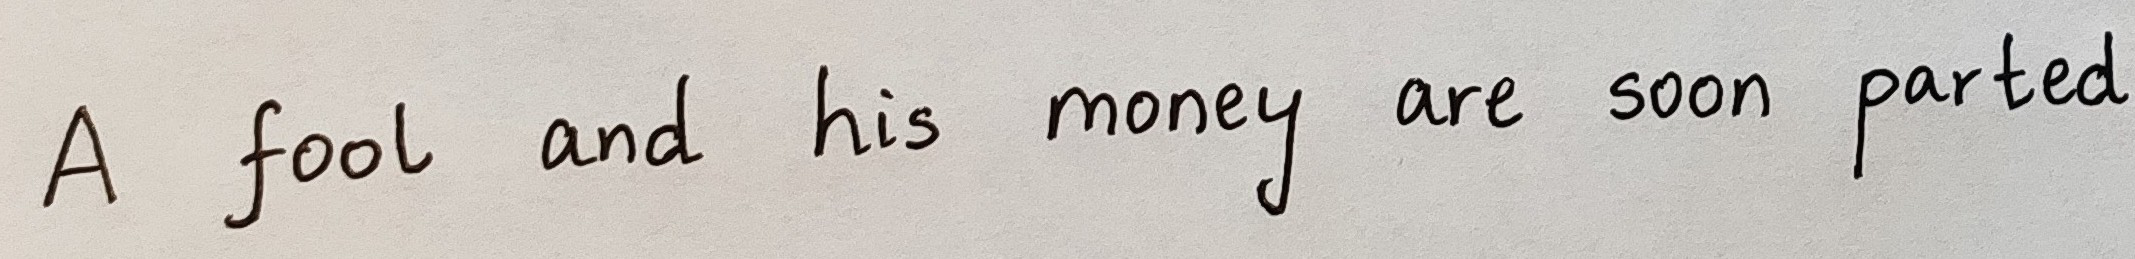 A fool and his money are soon parted